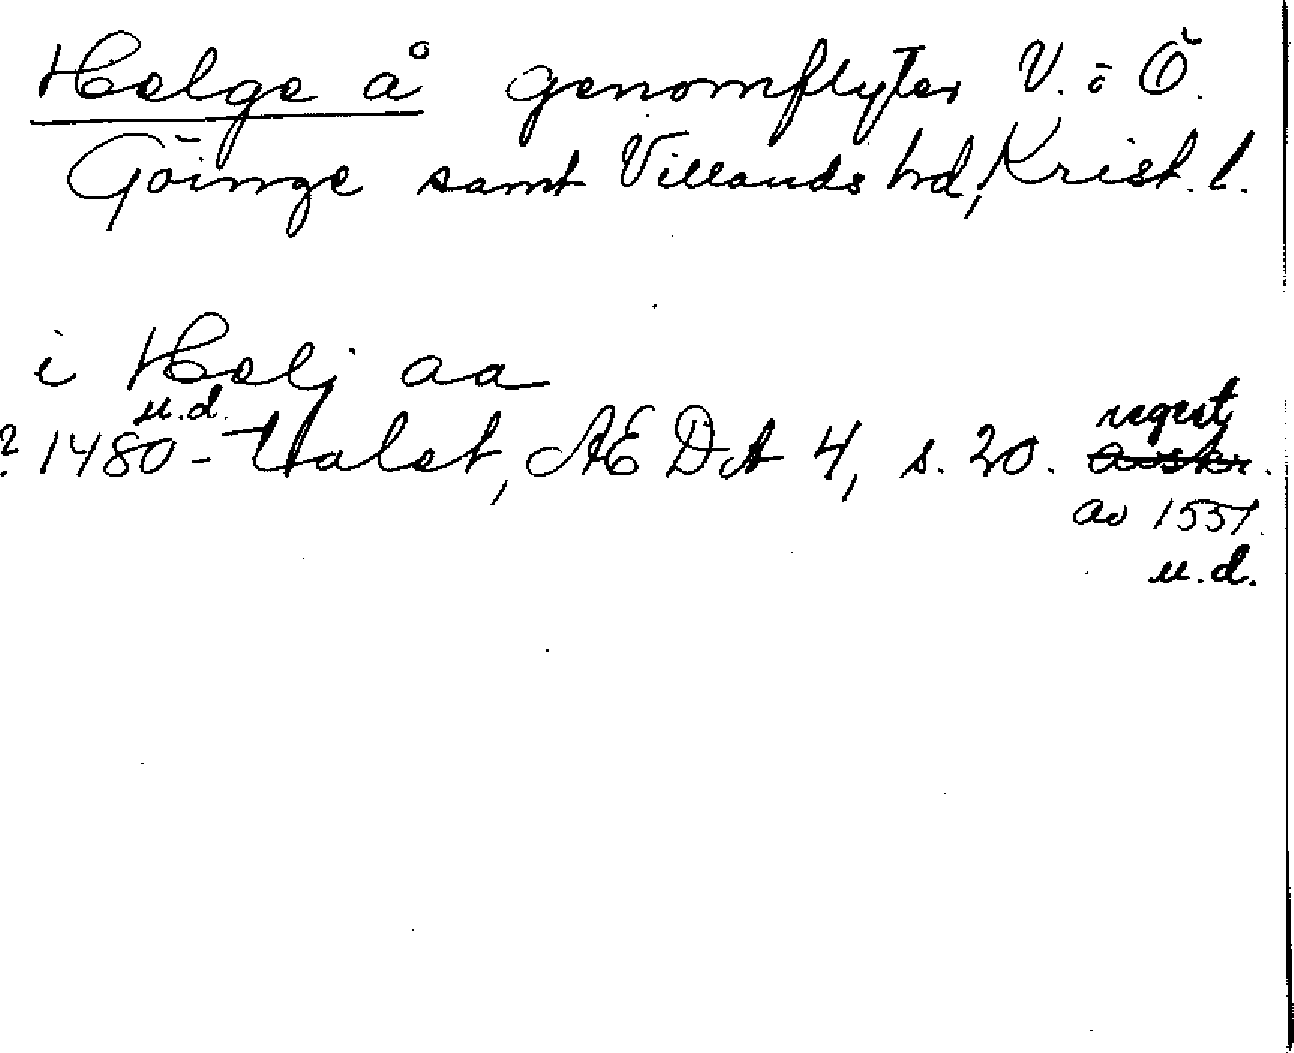 Helge å genomflyter V. o Ö.
Göinge samt Villands hd, Krist. l.
i Helj aa
u.d.
? 1480-talet, ÆDA 4, s. 20. regest
avskr.
av 1551.
u.d.